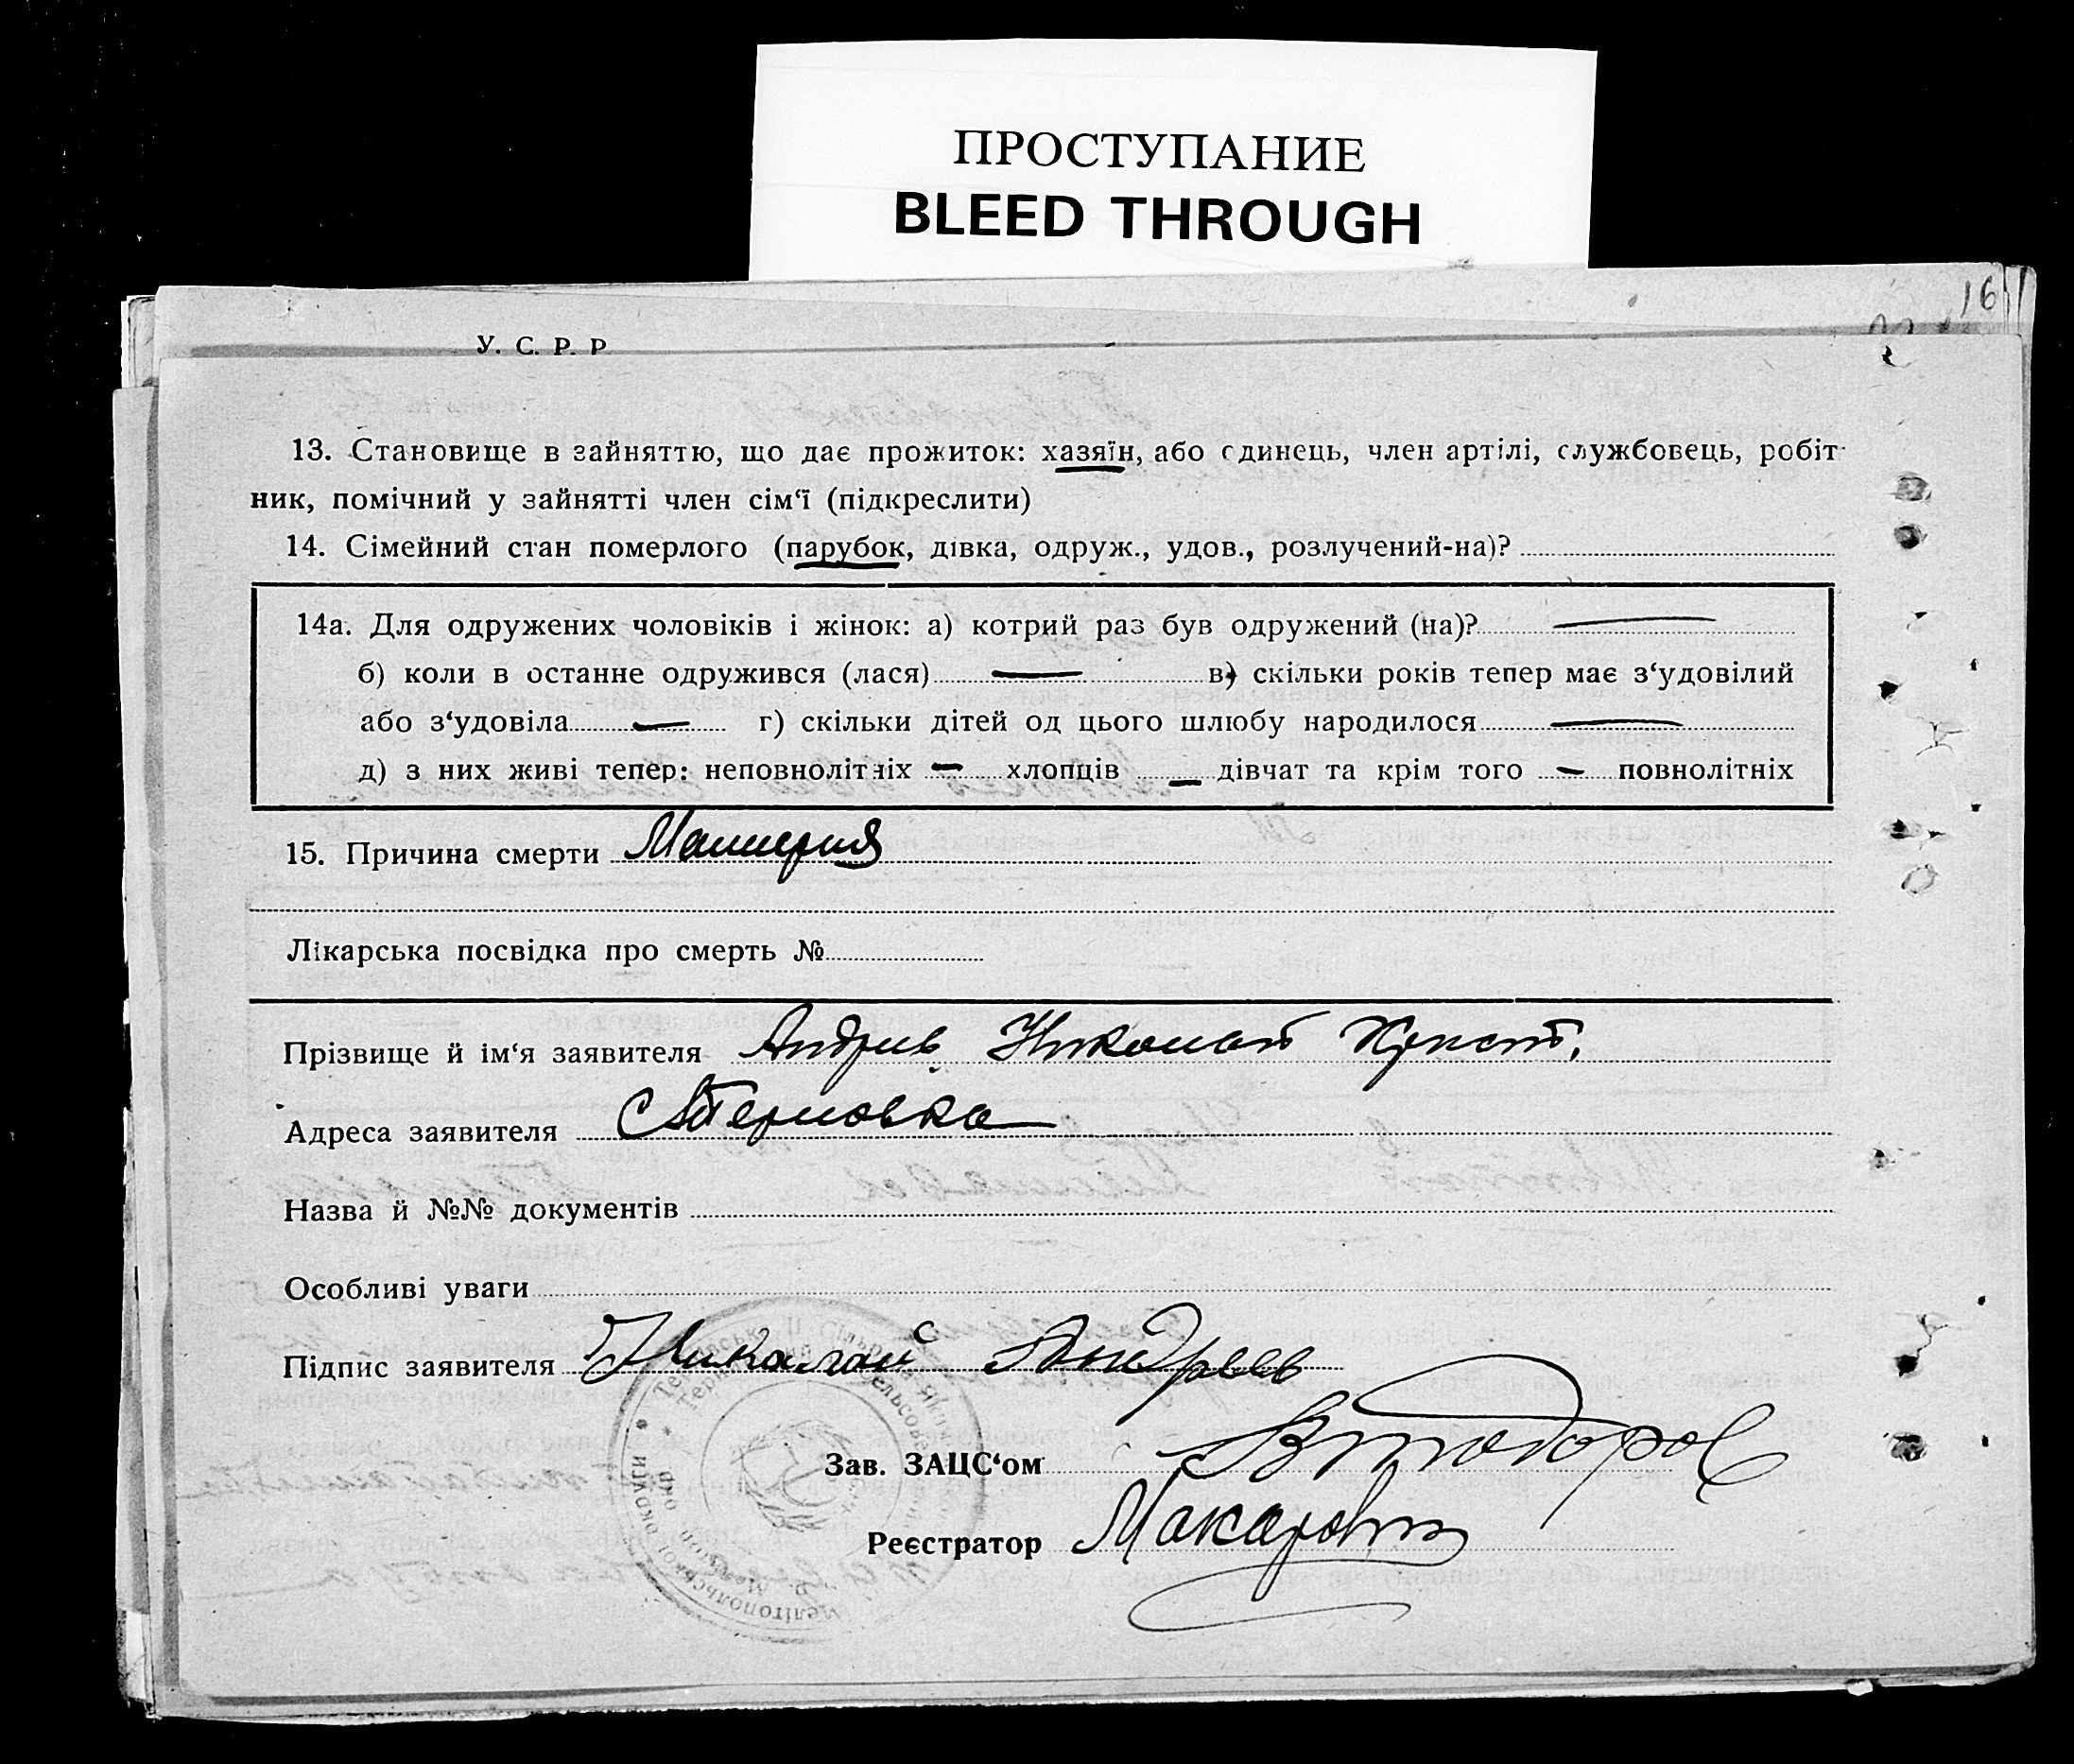 ПРОСТУПАНИЕ
BLEED THROUGH
16
У. С. Р. Р
13. Становище в зайняттю, що дає прожиток: хазяїн, або єдинець, член артілі, службовець, робіт-
ник, помічний у зайнятті член сім‘ї (підкреслити)
14. Сімейний стан померлого (парубок, дівка, одруж., удов., розлучений-на)?
14а. Для одружених чоловіків і жінок: а) котрий раз був одружений (на)? —
б) коли в останнє одружився (лася) — в) скільки років тепер має з‘удовілий
або з‘удовіла — г) скільки дітей од цього шлюбу народилося —
д) з них живі тепер: неповнолітніх — хлопців — дівчат та крім того — повнолітніх
15. Причина смерти
Лікарська посвідка про смерть №
Прізвище й ім‘я заявителя Андрив Николай Крист.
Адреса заявителя с Терновка
Назва й №№ документів
Особливі уваги
Підпис заявителя Николай Андреев
Зав. ЗАЦС‘ом
Реєстратор